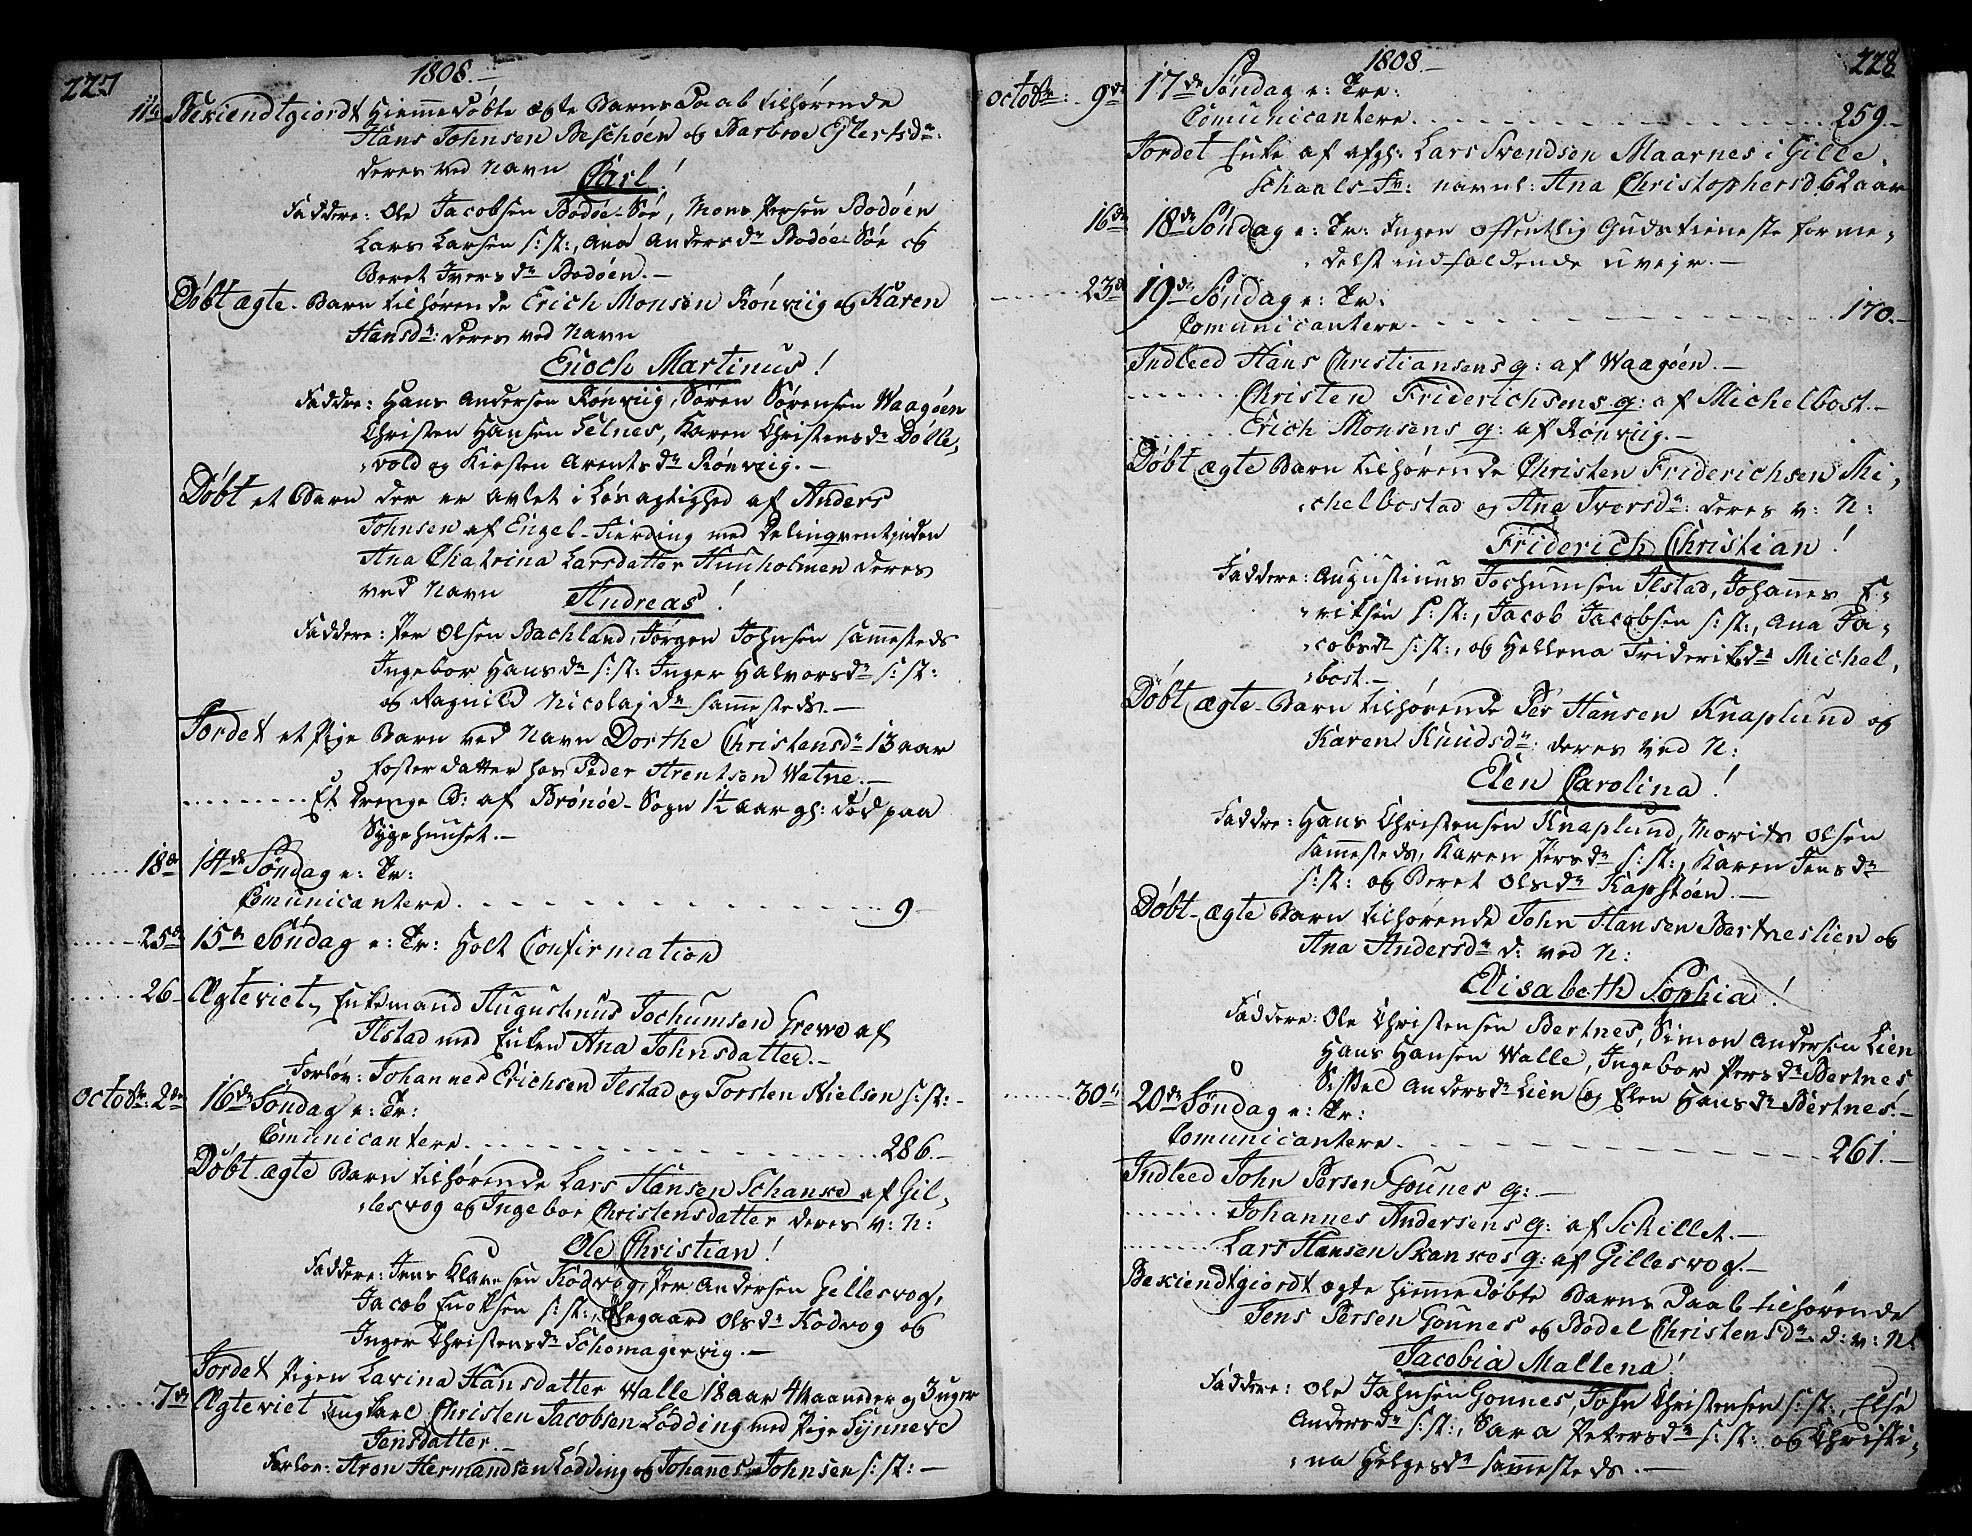 227
1808.-
11te Bekiendtgiordt Hiemmedøbte ægte Barns Daab tilhørende
Hans Johnsen Beschøen og Barbroe Eylertsdr:
deres ved Navn Carl!
Faddere: Ole Jacobsen Bodøe-Søe, Mons Persen Bodøen
Lars Larsen s: st:, Ana Andersdr Bodøe-Søe og
Beret Iversdr Bodøen.-
Døbt ægte Barn tilhørende Erich Monsen Rønviig og Karen
Hansdr: deres ved Navn
Enoch Martinus!
Faddre: Hans Andersen Rønviig, Søren Sørensen Waagøen
Christen Hansen Selnes, Karen Christensdr Dølle,
,vold og Kirsten Arentsdr Rønviig.-
Døbt et Barn der er avlet i Løsagtighed af Anders
Johnsen af Engel-Fierding med Delinqventqinden
Ana Chatrina Larsdatter Hunholmen deres
ved Navn Andreas!
Faddere: Per Olsen Bachland, Jørgen Johnsen sammesteds
Ingebor Hansdr s: st: Inger Halvorsdr s: st:
og Ragnild Nicolajdr sammesteds.-
Jordet et Pige Barn ved Navn Dorthe Christensdr 13 aar
Foster datter hos Peder Arentsen Watne.-
......... Et Drenge B: af Brønøe-Sogn 1½ aar gl: død paa
Sygehuuset.-
...... 18de 14de Søndag e: Tr:
Comunicantere. - - - - - - 9
...... 25de 15de Søndag e: Tr: Holt Confirmation
...... 26- Ægteviet, Enkemand Augustinus Jochumsen Grewe af
Ilstad med Enken Ana Johnsdatter.-
Forlov: Johannes Erichsen Ilstad og Torsten Nielsen s: st:-
Octobr: 2den 16de Søndag e: Tr:
Comunicantere. - - - - - - 286.-
Døbt ægte Barn tilhørende Lars Hansen Schanke af Gil,
,lesvog og Ingebor Christensdatter deres v: N:
Ole Christian!
Faddere: Jens Klausen Kodvog, Per Andersen Gillesvog,
Jacob Enoksen s: st:, Olsdr Kodvog og
Inger Christensdr Schomagervig.-
Jordet Pigen Lavina Hansdatter Walle 18 aar 4 Maaneder og 3 uger
...... 7de Ægteviet Ungkarl Christen Jacobsen Lødding med Pige Synneve
Jensdatter.-
Forlov: Aron Hermandsen Lødding og Johannes Johnsen s: st:-
1808-
228
Octobr: 9de 17de Søndag e: Tre:
Comunicantere. - - - - - - 259.-
Jordet Enke af afgl: Lars Svendsen Maarnes i Gille,
Schaals Fr: navnl: Ana Christophersd. 62 aar
16de 18de Søndag e: Tr: Ingen offentlig Gudstieneste forme,
,delst indfaldende uvejr.-
...... 23de 19de Søndag e: Tr:
Comunicantere. - - - - - - 170.-
Indleed Hans Christiansens q: af Waagøen.-
...... Christen Friderichsens q: af Michelbost.-
...... Erich Monsens q: af Rønviig.-
Døbt ægte Barn tilhørende Christen Friderichsen Mi,
,chelbostad og Ana Iversdr: deres v: N:
Friderich Christian!
Faddere: Augustinus Jochumsen Ilstad, Johannes E,
,riksen s: st:, Jacob Jacobsen s: st:, Ana Ja,
,cobsdr s: st:, og Hellena Frideriksdr Michel,
,bost.-
Døbt ægte Barn tilhørende Per Hansen Knaplund og
Karen Knudsdr: deres ved N:
Elen Carolina!
Faddre: Hans Christensen Knaplund, Morits Olsen
sammesteds, Karen Persdr s: st:, Karen Jensdr
s: st: og Beret Olsdr Kapstøen.-
Døbt ægte Barn tilhørende John Hansen Bertneslien og
Ana Andersdr d: ved N:
Elisabeth Sophia!
Faddere: Ole Christensen Bertnes, Simon Andersen Lien
Hans Hansen Walle, Ingebor Persdr Bertnes
Sissel Andersdr Lien og Elen Hansdr Bertnes.-
...... 30te 20de Søndag e: Tr:
Comunicantere. - - - - - - 261.-
Indleed John Persen Gounes q:-
....... Johannes Andersens q: af Schillet.-
....... Lars Hansen Skankes q: af Gillesvog.-
Bekiendtgiordt ægte hiemmedøbte Barns Daab tilhørende
Jens Persen Gounes og Bodel Christensdr. d: v: N:
Jacobia Mallena!
Faddere: Ole Johnsen Gonnes, John Christensen s: st:, Else
Andersdr s: st:, Sara Petersdr s: st: og Christi,
,na Helgesdr sammesteds.-